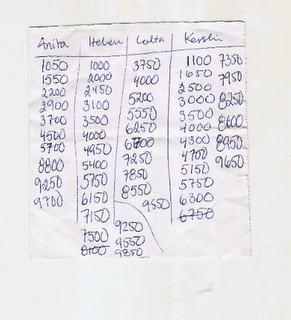 Anita Helen Lolta Kerstin
1050 1000 3750 1100 7350
1550 2000 4000 1650 7950
2200 2450 5200 2500 8250
2900 3100 5550 3000 8600
3700 3500 6250 3500 8950
4500 4000 6700 4000 9650
5700 4950 7250 4300
8800 5400 7850 4700
9250 5750 8550 5150
9700 6150 9550 5750
7150 9250 6300
7500 9550 6750
8100 9850